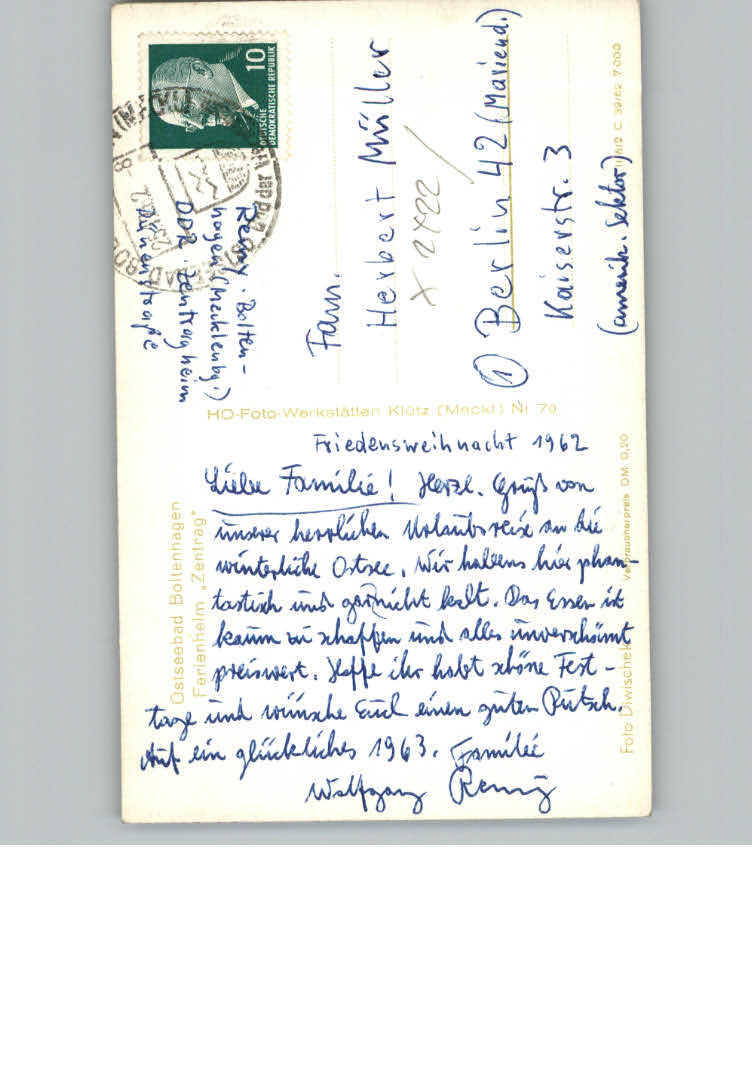 10
DEUTSCHE
DEMOKRATISCHE REPUBLIK
Remy · Bolten-
hagen (Mecklenbg.)
DDR · Zentragheim
Dünenstraße
Fam.
Herbert Müller
X 2422
① Berlin 42 (Mariend.)
Kaiserstr. 3
(amerik. Sektor)
C 39/62 7000
HO-Foto-Werkstätten Klütz (Meckl) Nr 70
Ostseebad Boltenhagen
Ferienheim „Zentrag"
Friedensweihnacht 1962
Liebe Familie! Herzl. Gruß von
unserer herrlichen Urlaubsreise an die
winterliche Ostsee. Wir habens hier phan-
tastisch und gar nicht kalt. Das Essen ist
kaum zu schaffen und alles unverschämt
preiswert. Hoffe ihr habt schöne Fest-
tage und wünsche Euch einen guten Rutsch.
Auf ein glückliches 1963. Familie
Wolfgang Remy
Foto Diwischek
Verbraucherpreis DM 0,20